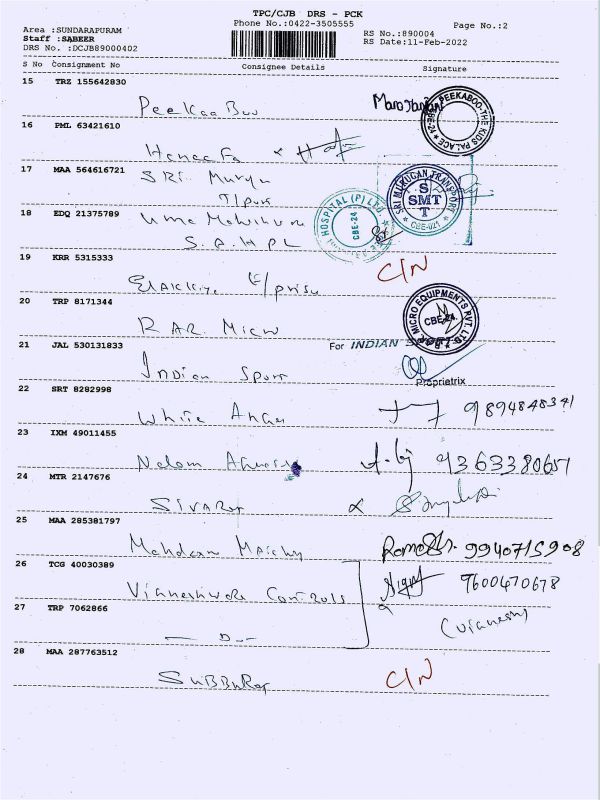 TPC/CJB DRS - PCK
Area :SUNDARAPURAM Phone No.:0422-3505555 Page No.:2
Staff :SABEER RS No.:890004
DRS No. :DCJB89000402 RS Date:11-Feb-2022
S No Consignment No Consignee Details Signature
15 TRZ 155642830
PeeKaaBuu
PEEKABOO-THE KIDS PALACE
16 PML 63421610
Haneefa
17 MAA 564616721
SRI. Muruga
T/port
SRI MURUGAN TRANSPORT
SMT
CBE-021
18 EDQ 21375789
S.A.H.P.L
HOSPITAL (P) LTD.
CBE-24
19 KRR 5315333
C/N
20 TRP 8171344
RAR. Micro
MICRO EQUIPMENTS PVT. LTD.
CBE-24.
21 JAL 530131833
Indian Sport
For INDIAN SPORT
Proprietrix
22 SRT 8282998
White Anger
9894848341
23 IXM 49011455
9363380657
24 MTR 2147676
SIVARaj
25 MAA 285381797
9940715908
26 TCG 40030389
Vigneshwara Controls
9600470678
27 TRP 7062866
— D. —
(Vignesh)
28 MAA 287763512
SUBBURaj
C/N